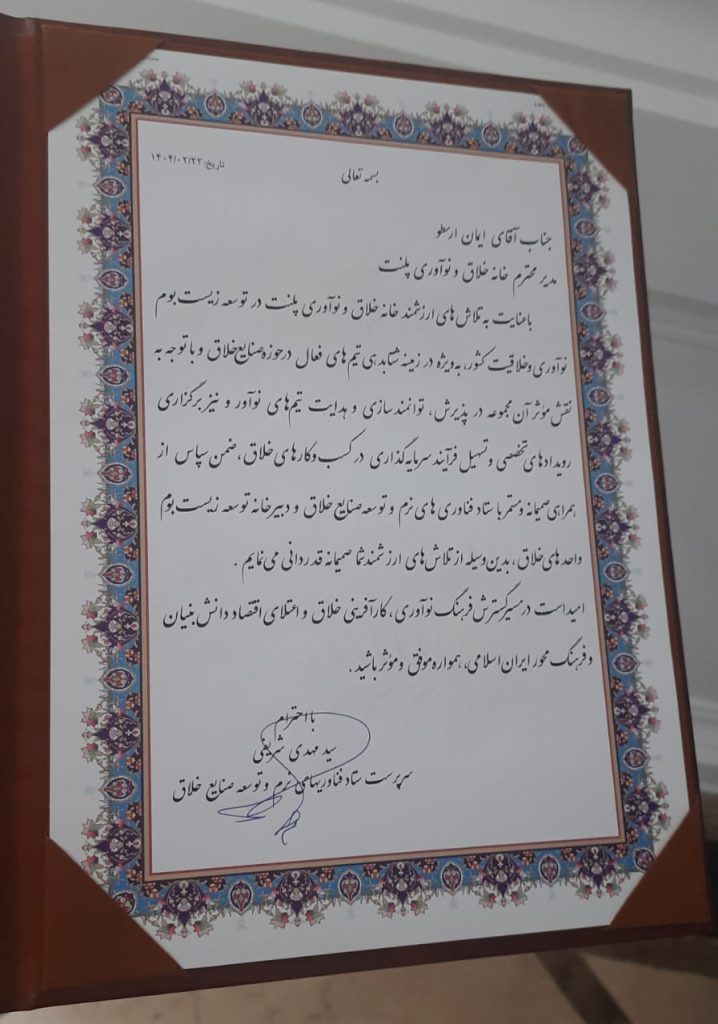 بسمه تعالی
تاریخ: ۱۴۰۴/۰۲/۲۲
جناب آقای ایمان ارسطو
مدیر محترم خانه خلاق و نوآوری پلنت
باعنایت به تلاش های ارزشمند خانه خلاق و نوآوری پلنت در توسعه زیست بوم
نوآوری و خلاقیت کشور، به ویژه در زمینه شتابدهی تیم های فعال در حوزه صنایع خلاق و با توجه به
نقش مؤثر آن مجموعه در پذیرش، توانمندسازی و هدایت تیم های نوآور و نیز برگزاری
رویدادهای تخصصی و تسهیل فرآیند سرمایه گذاری در کسب و کارهای خلاق، ضمن سپاس از
همراهی صمیمانه و مستمر با ستاد فناوری های نرم و توسعه صنایع خلاق و دبیرخانه توسعه زیست بوم
واحدهای خلاق، بدین وسیله از تلاش های ارزشمند شما صمیمانه قدردانی می نمایم.
امید است در مسیر گسترش فرهنگ نوآوری، کارآفرینی خلاق و اعتلای اقتصاد دانش بنیان
و فرهنگ محور ایران اسلامی، همواره موفق و مؤثر باشید.
با احترام
سید مهدی شریفی
سرپرست ستاد فناوریهای نرم و توسعه صنایع خلاق